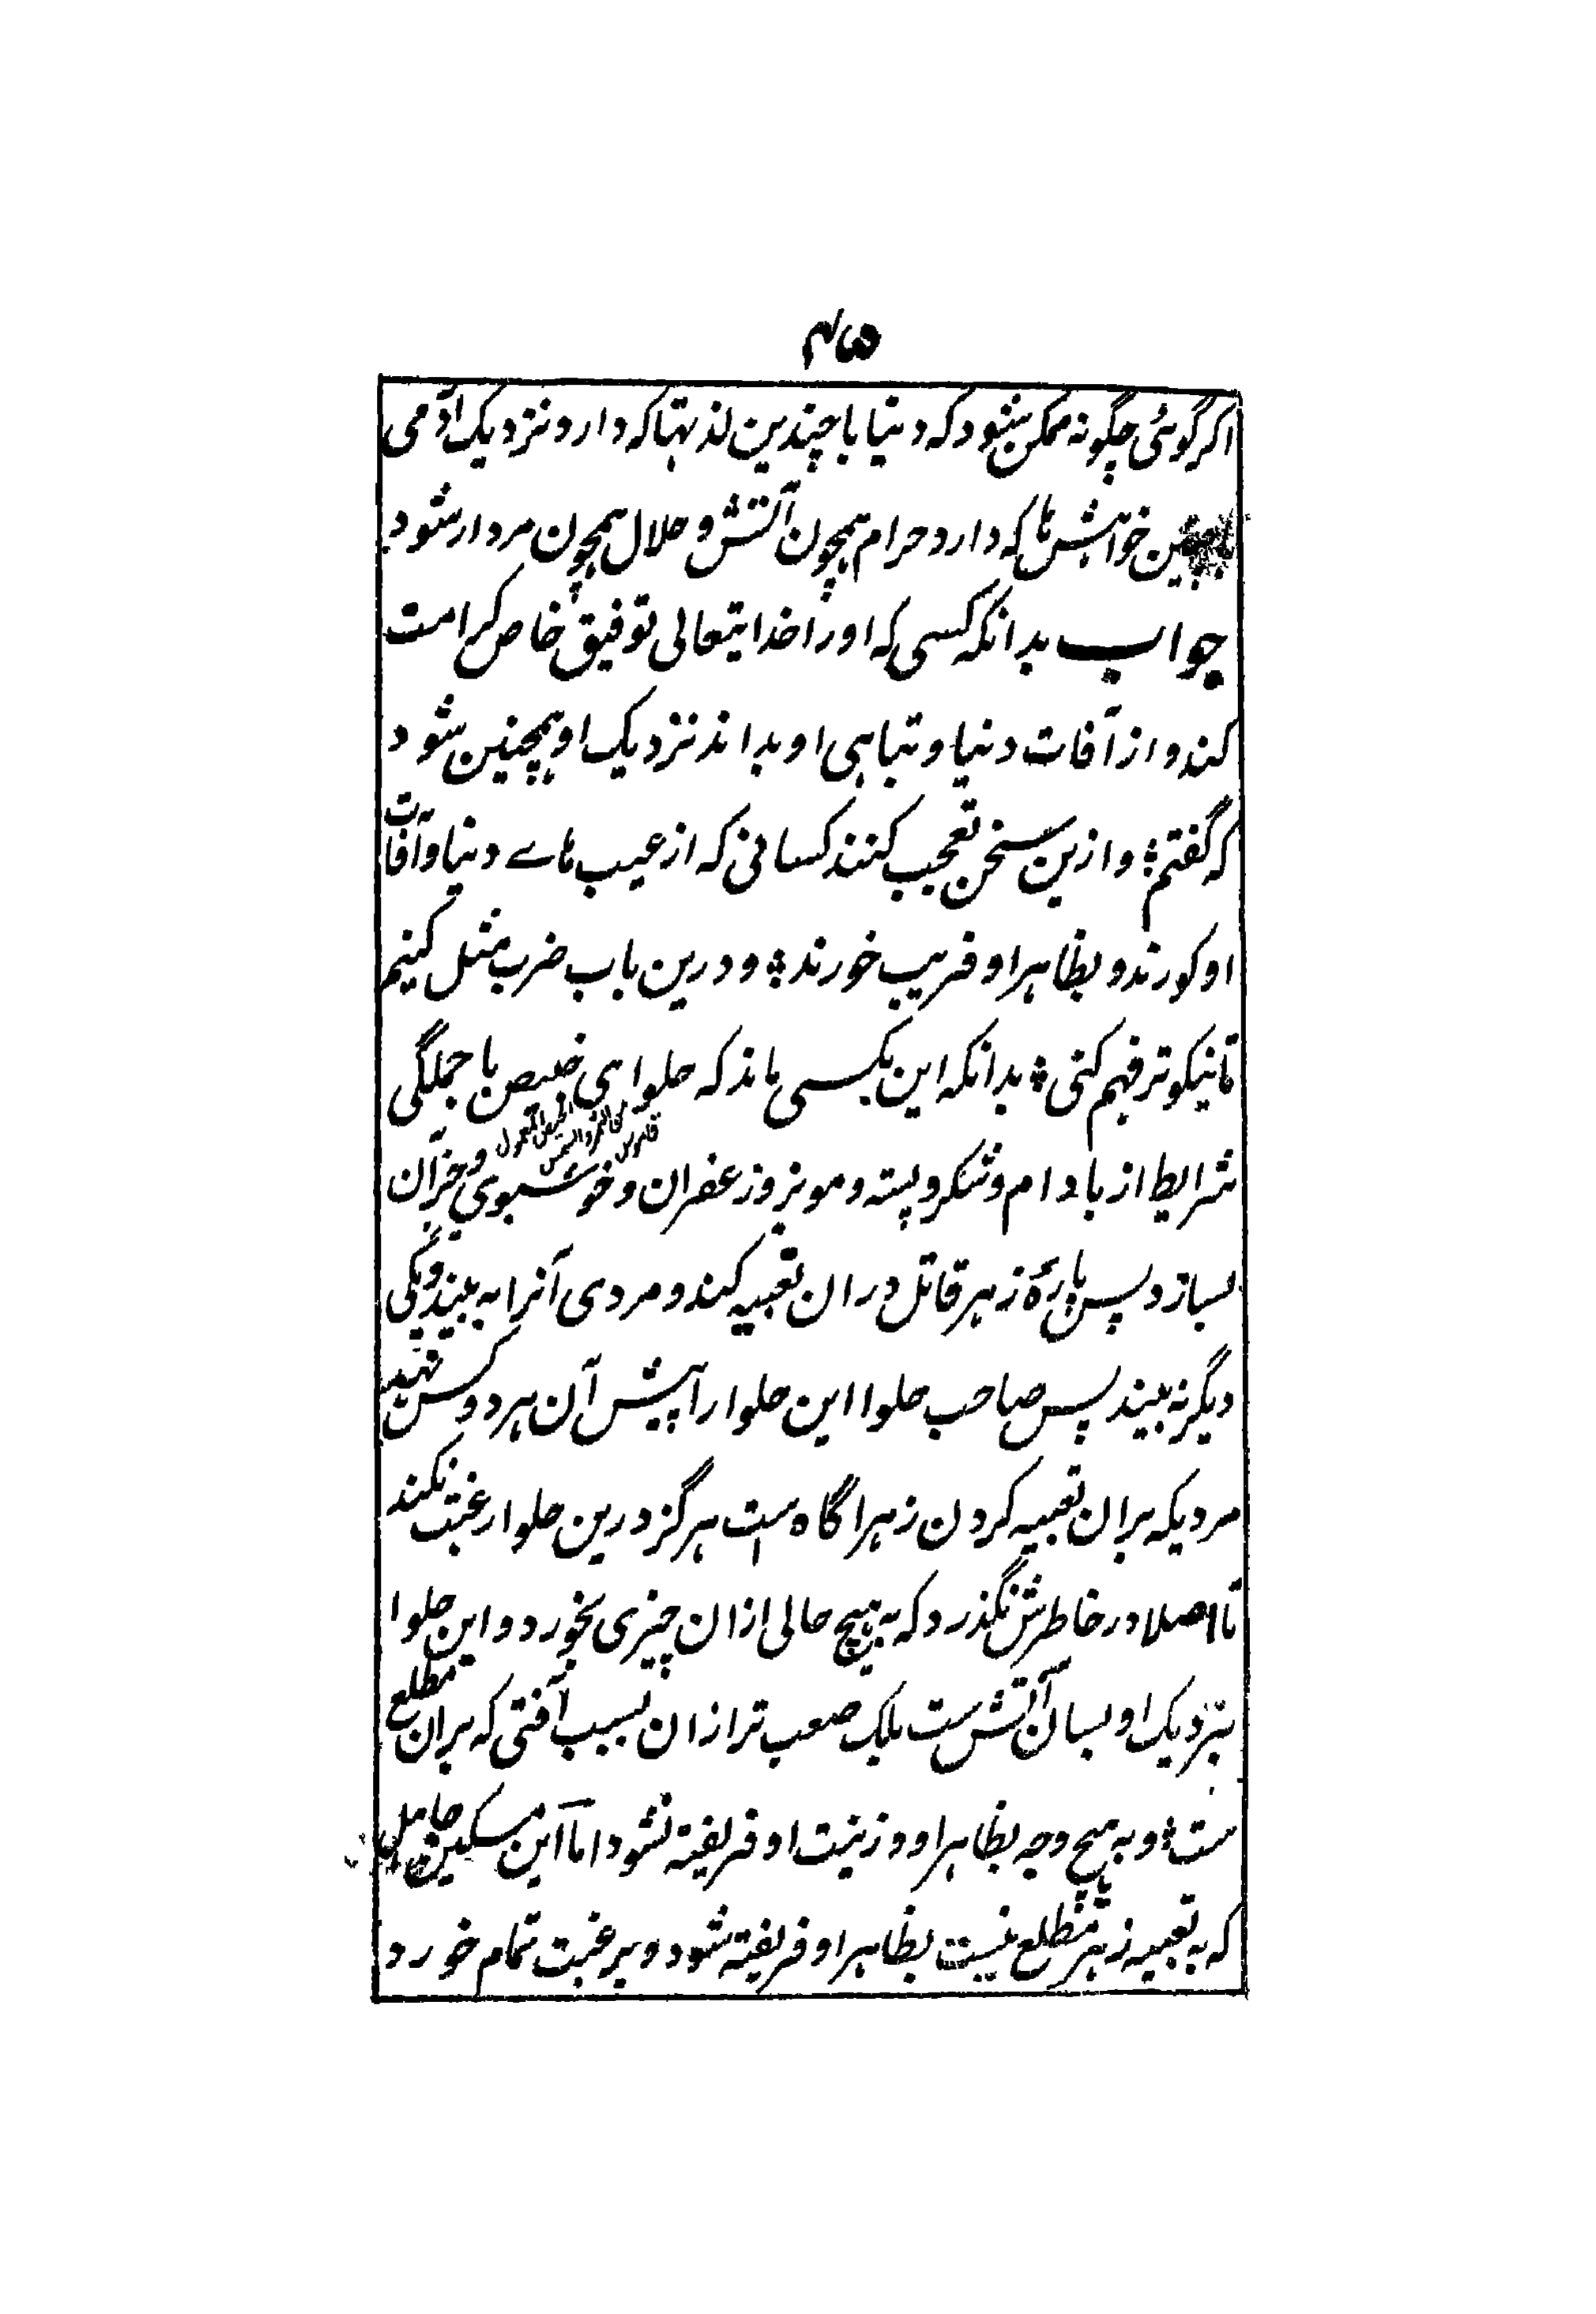 اکر گوئی چگونه ممکن شود که دنیا با چندین لذتها که دارد نزدیک آدمی
خواهش ها که دارد حرام همچون آتش و حلال همچون مردار شود
جواب بدانکه کسی که اورا خدایتعالی توفیق خاص کرامت
کند و از آفات دنیا و تباهی او بداند نزدیک او همچنین شود
که گفتم ؛ و ازین سخن تعجب کنند کسانی که از عیب هاے دنیا و آفات
او کورند و بظاهر او فریب خورند ؛ و درین باب ضرب مثل کنیم
تا نیکو تر فهم کنی ؛ بدانکه این بکسی ماند که حلوای خبیص با جملگی
شرایط از بادام و شکر و پسته و مویز و زعفران و خوشبوی و جزآن
بسازد پس پارۀ زهر قاتل دران تعبیه کند و مردی آنرا به بیند و یکی
دیگر نه بیند پس صاحب حلوا این حلوا را پیش آن هر دو کس نهد
مردیکه بران تعبیه کردن زهر اگاه است هرگز درین حلوا رغبت نکند
تا اصلا در خاطرش نگذرد که به هیچ حالی ازان چیزی بخورد و این حلوا
بنزدیک او بسان آتش ست بلک صعب تر ازان بسبب آفتی که بران مطلع
ست ؛ و به هیچ وجه بظاهر او و زینت او فریفته نشود اما این مسکین جاهل
که به تعبیه زهرش مطلع نیست بظاهر او فریفته شود و برغبت تمام خورد